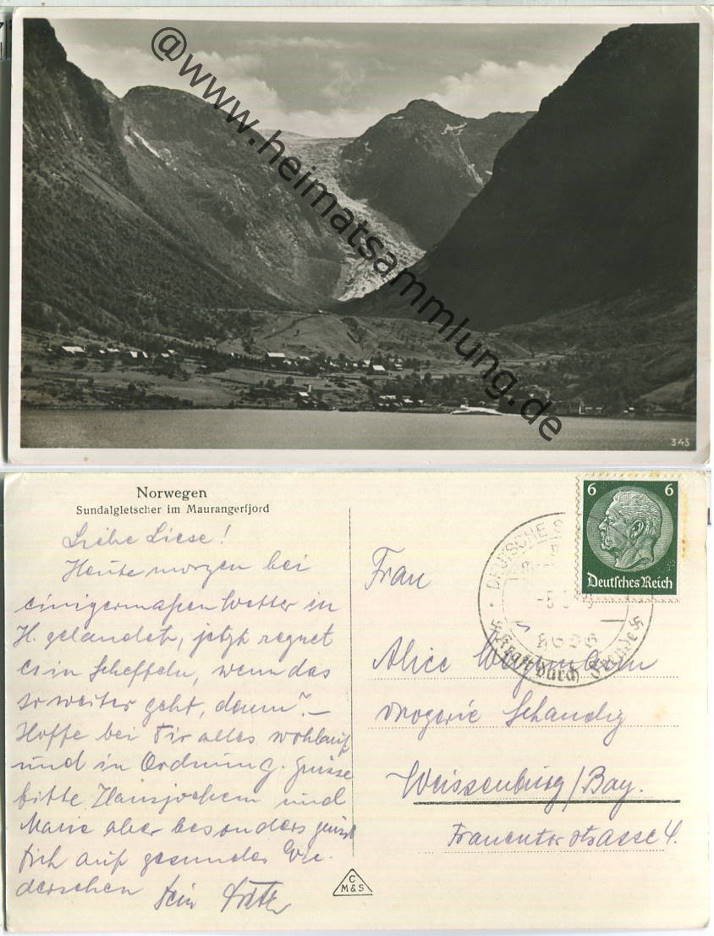 @www.heimatsammlung.de
343
Norwegen
Sundalgletscher im Maurangerfjord
Liebe Liese!
Heute morgen bei
einigermaßen Wetter in
H. gelandet, jetzt regnet
es in Scheffeln, wenn das
so weiter geht, dann? –
Hoffe bei Dir alles wohlauf
und in Ordnung. Grüsse
bitte Hansjochem und
Marie aber besonders grüsst
Dich auf gesundes Wie-
dersehen Dein
C
M&S
6 6
Deutsches Reich
DEUTSCHE
Kraft durch Freude
Frau
Alice
Drogerie
Weissenburg/Bay.
4.